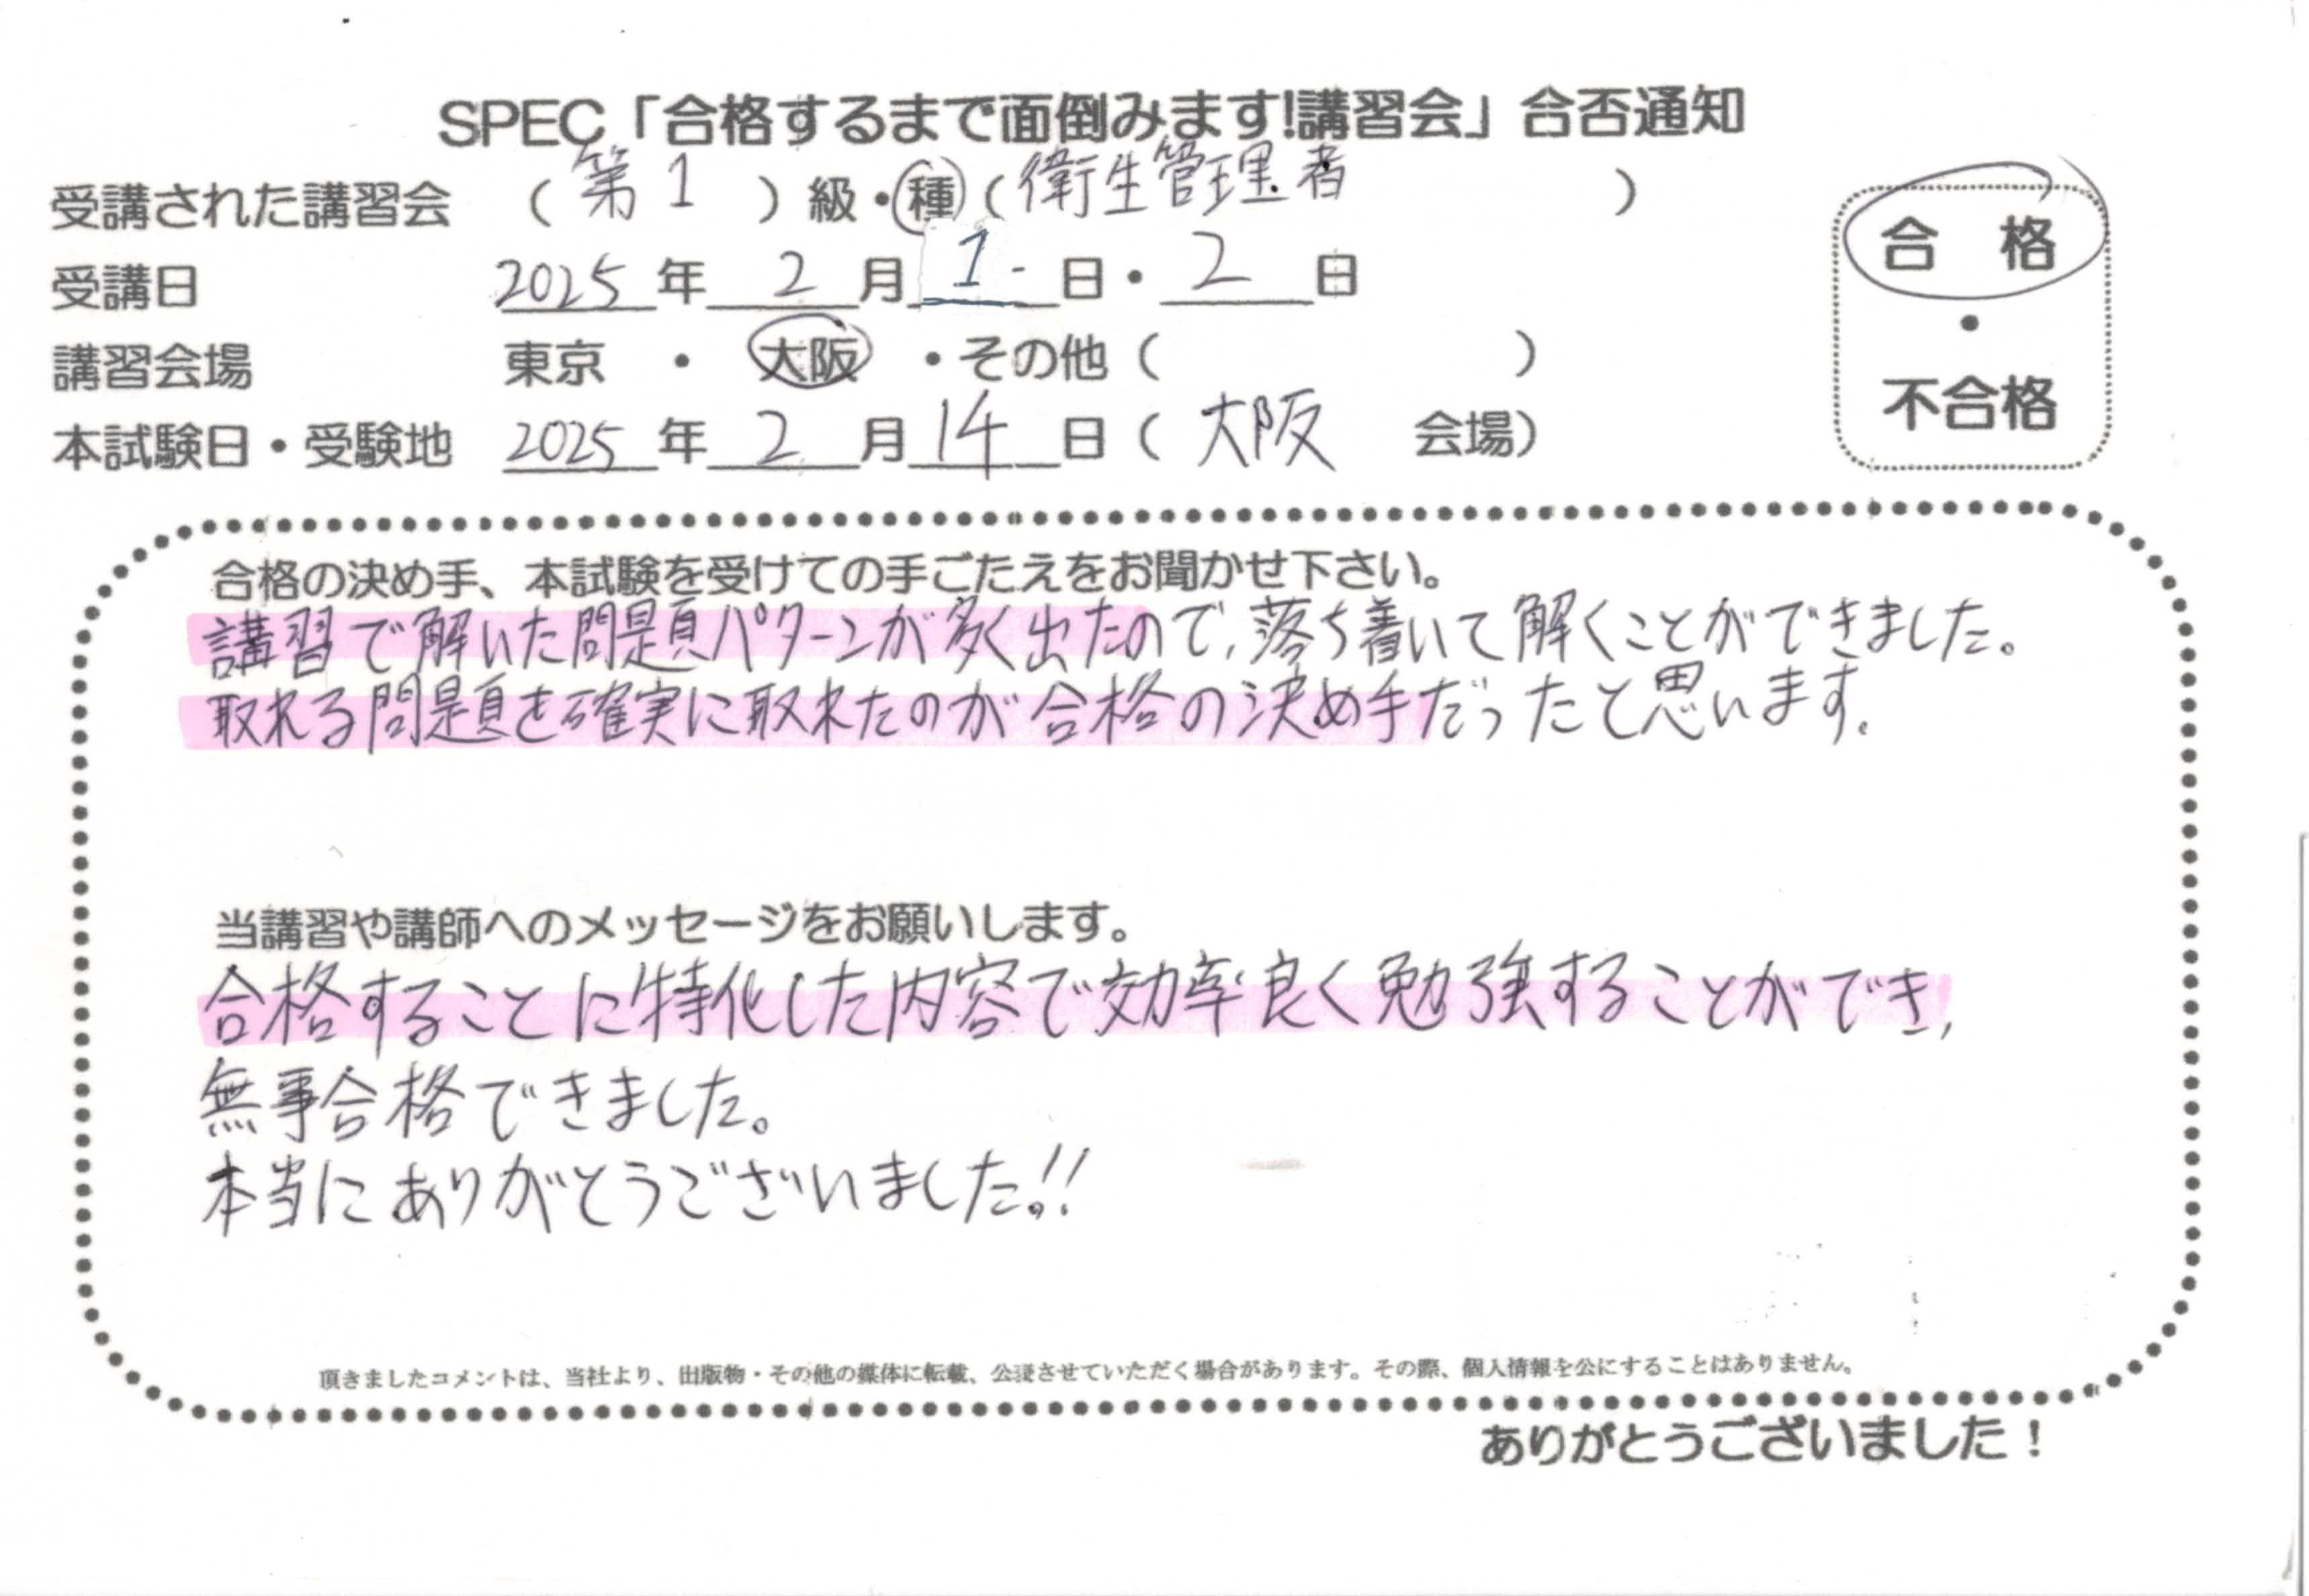 SPEC「合格するまで面倒みます!講習会」合否通知
受講された講習会 （第1）級・種（衛生管理者）
受講日 2025年2月1日・2日
講習会場 東京・大阪・その他（ ）
本試験日・受験地 2025年2月14日（大阪 会場）
合格
・
不合格
合格の決め手、本試験を受けての手ごたえをお聞かせ下さい。
講習で解いた問題パターンが多く出たので、落ち着いて解くことができました。
取れる問題を確実に取れたのが合格の決め手だったと思います。
当講習や講師へのメッセージをお願いします。
合格することに特化した内容で効率良く勉強することができ、
無事合格できました。
本当にありがとうございました!!
頂きましたコメントは、当社より、出版物・その他の媒体に転載、公表させていただく場合があります。その際、個人情報を公にすることはありません。
ありがとうございました！